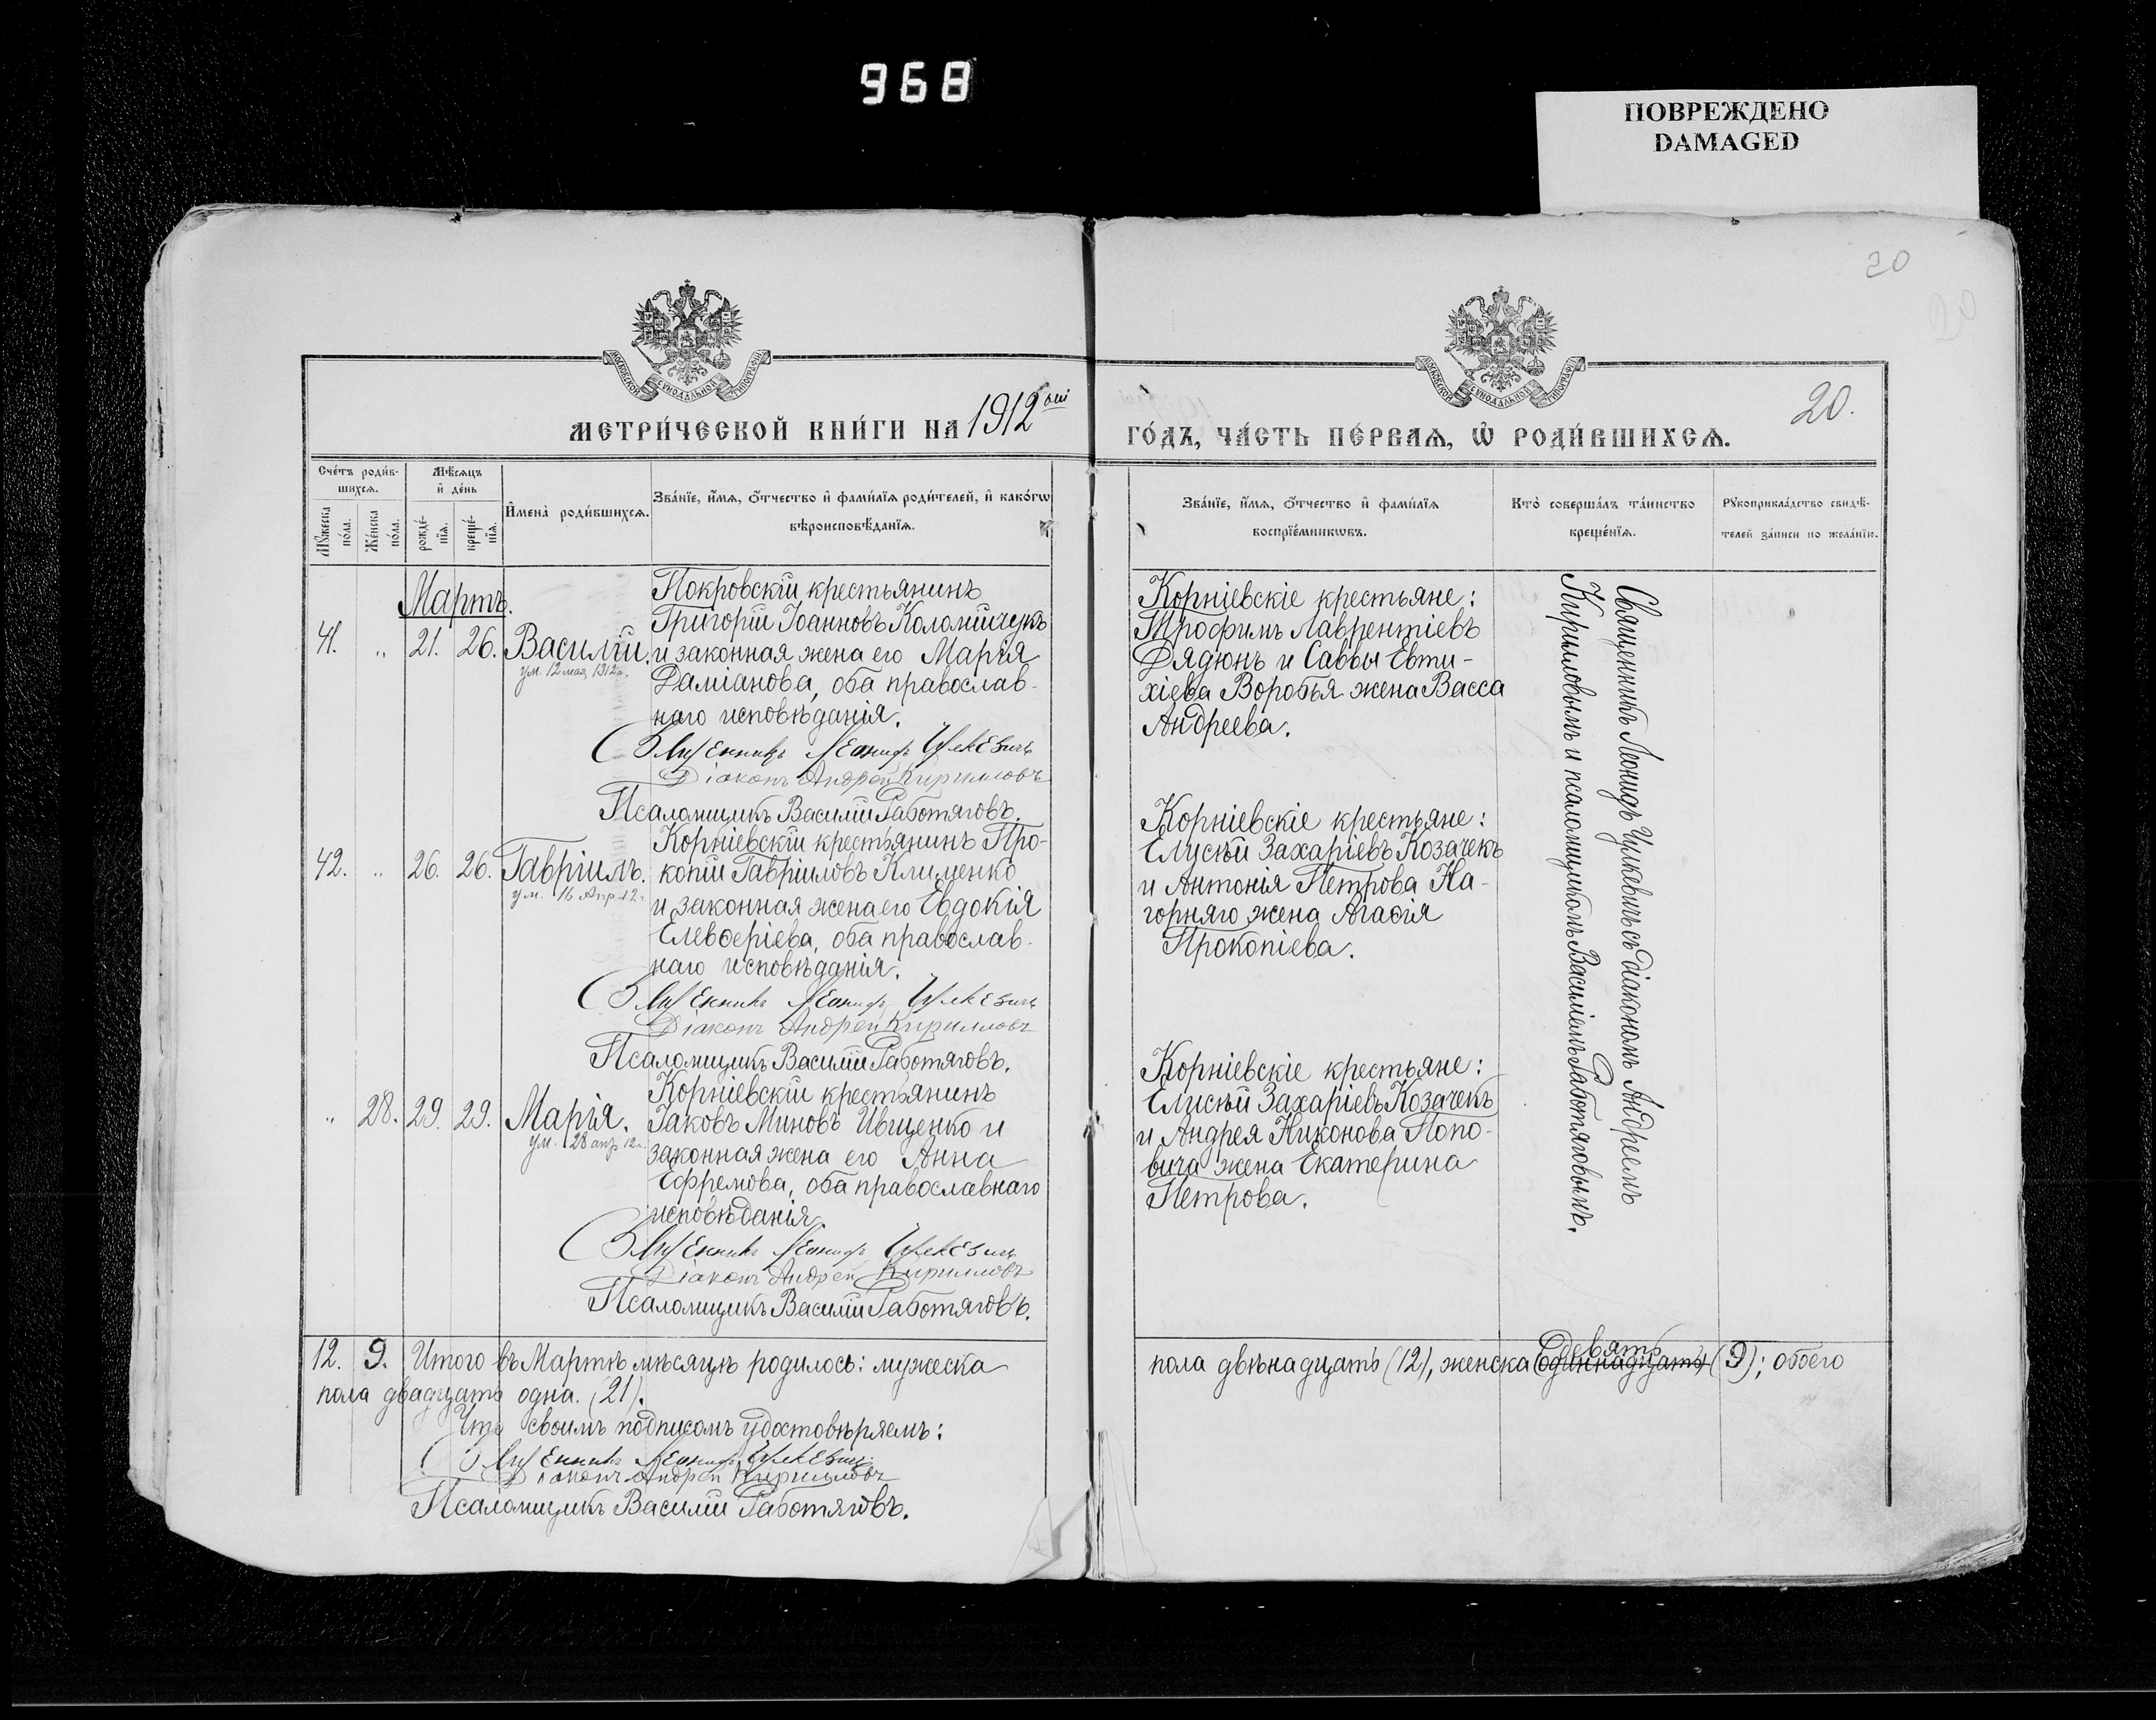 968
ПОВРЕЖДЕНО
DAMAGED
20
20
МОСКОВСКОЙ СѴНОДАЛЬНОЙ ТИПОГРАФІИ
МОСКОВСКОЙ СѴНОДАЛЬНОЙ ТИПОГРАФІИ
МЕТРИ́ЧЕСКОЙ КНИ́ГИ НА 1912 ый
ГО́ДЪ, ЧА́СТЬ ПЕ́РВАѦ, Ѡ҆ РОДИ́ВШИХСѦ. 20.
Сче́тъ роди́в-
шихсѧ.
Мꙋ́жеска по́ла.
Же́нска по́ла.
Мѣ́сѧцъ
и҆ де́нь
рожде́-
нїѧ.
креще́-
нїѧ.
И҆мена̀ роди́вшихсѧ.
Зва́нїе, и҆́мѧ, ѻ҆́тчество и҆ фами́лїѧ роди́телей, и҆ како́гѡ
вѣроисповѣ́данїѧ.
Зва́нїе, и҆́мѧ, ѻ҆́тчество и҆ фами́лїѧ
воспрїе́мникѡвъ.
Кто̀ соверша́лъ та́инство
креще́нїѧ.
Рꙋкоприкла́дство свидѣ́-
телей за́писи по жела́нїю.
Мартъ.
41. „ 21. 26. Василій.
ум. 12 мая 1912 г.
Покровскій крестьянинъ
Григорій Іоанновъ Коломійчукъ
и законная жена его Марія
Даміанова, оба православ-
наго исповѣданія.
Священникъ Леонидъ Чулкевичъ
Діаконъ Андрей Кирилловъ
Псаломщикъ Василій Работяговъ.
Корніевскіе крестьяне:
Трофимъ Лаврентіевъ
Дядюнъ и Саввы Евти-
хіева Воробья жена Васса
Андреева.
42. „ 26. 26. Гавріилъ.
ум. 16 Апр. 12 г.
Корніевскій крестьянинъ Про-
копій Гавріиловъ Клименко
и законная жена его Евдокія
Елевѳеріева, оба православ-
наго исповѣданія.
Священникъ Леонидъ Чулкевичъ
Діаконъ Андрей Кирилловъ
Псаломщикъ Василій Работяговъ.
Корніевскіе крестьяне:
Елисѣй Захаріевъ Козачекъ
и Антонія Петрова На-
горняго жена Агаѳія
Прокопіева.
„ 28. 29. 29. Марія.
ум. 28 апр 12 г.
Корніевскій крестьянинъ
Іаковъ Миновъ Иващенко и
законная жена его Анна
Ефремова, оба православнаго
исповѣданія.
Священникъ Леонидъ Чулкевичъ
Діаконъ Андрей Кирилловъ
Псаломщикъ Василій Работяговъ.
Корніевскіе крестьяне:
Елисѣй Захаріевъ Козачекъ
и Андрея Никонова Попо-
вича жена Екатерина
Петрова.
Священникъ Леонидъ Чулкевичъ съ діакономъ Андреемъ
Кирилловымъ и псаломщикомъ Василіемъ Работяговымъ.
12. 9. Итого въ Мартѣ мѣсяцѣ родилось: мужеска
пола двѣнадцать (12), женска одиннадцать девять (9); обоего
пола двадцать одна. (21).
Что своимъ подписомъ удостовѣряемъ:
Священникъ Леонидъ Чулкевичъ
Діаконъ Андрей Кирилловъ
Псаломщикъ Василій Работяговъ.